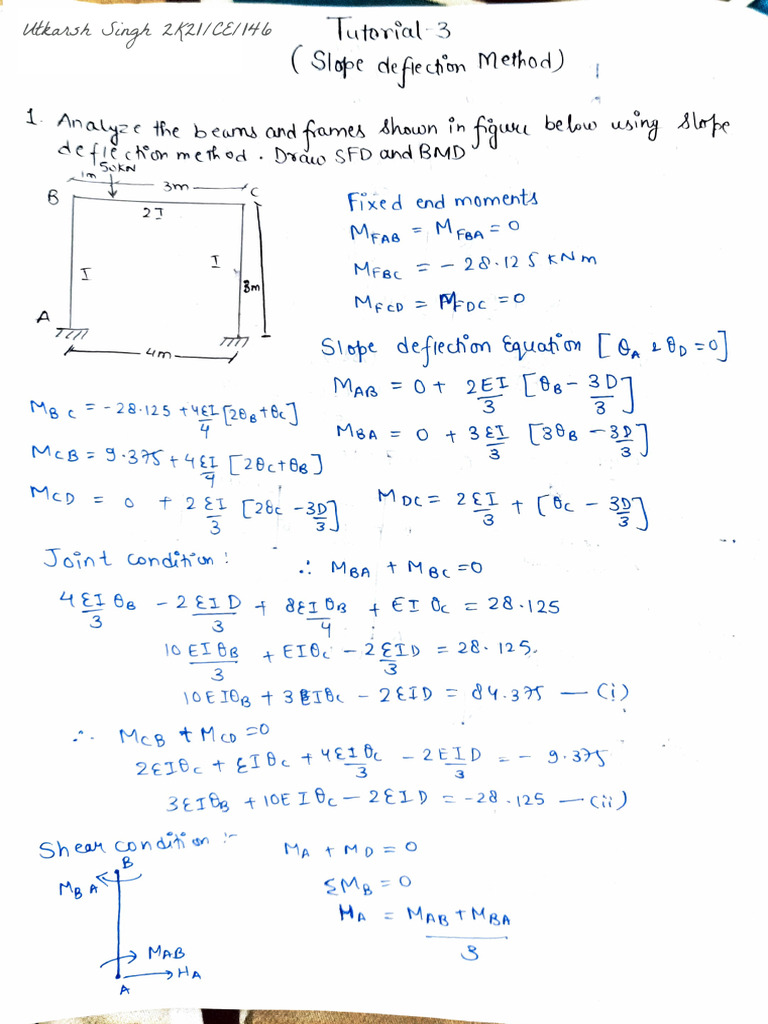 Utkarsh Singh 2K21/CE/146
Tutorial-3
(Slope deflection Method)
1. Analyze the beams and frames shown in figure below using slope
deflection method. Draw SFD and BMD
50KN
1m 3m
B C
2I
I I
3m
A
4m
Fixed end moments
MFAB = MFBA = 0
MFBC = - 28.125 KNm
MFCD = MFDC = 0
Slope deflection Equation [θA & θD = 0]
MAB = 0 + 2EI/3 [θB - 3D/3]
MBA = 0 + 3EI/3 [3θB - 3D/3]
MBC = -28.125 + 4EI/4 [2θB + θC]
MCB = 9.375 + 4EI/4 [2θC + θB]
MCD = 0 + 2EI/3 [2θC - 3D/3] MDC = 2EI/3 + [θC - 3D/3]
Joint condition: ∴ MBA + MBC = 0
4EIθB/3 - 2EID/3 + 8EIθB/4 + EIθC = 28.125
10EIθB/3 + EIθC - 2EID/3 = 28.125.
10EIθB + 3EIθC - 2EID = 84.375 — (i)
∴ MCB + MCD = 0
2EIθC + EIθC + 4EIθC/3 - 2EID/3 = - 9.375
3EIθB + 10EIθC - 2EID = -28.125 — (ii)
Shear condition :- MA + MD = 0
B
MBA
ΣMB = 0
HA = MAB + MBA/3
MAB
HA
A